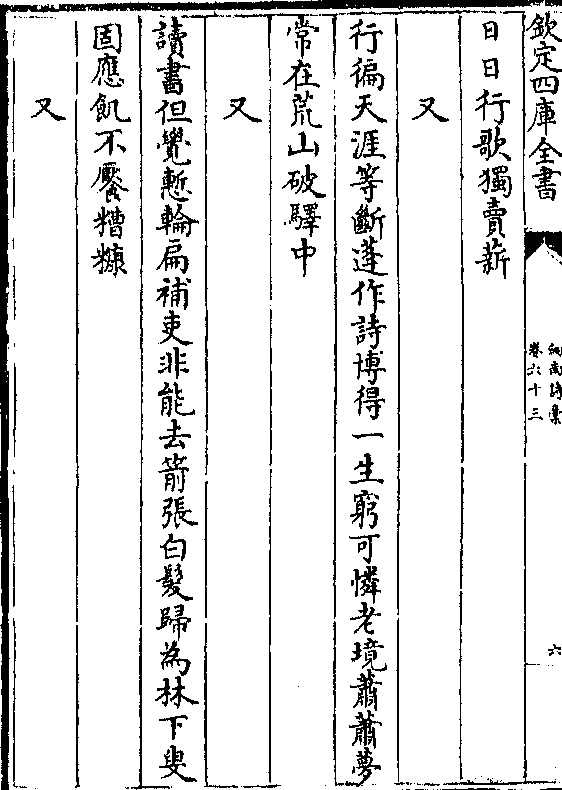 欽定四庫全書
劔南詩稾
卷六十三
六
日日行歌獨賣薪
又
行徧天涯等斷蓬作詩博得一生窮可憐老境蕭蕭夢
常在荒山破驛中
又
讀書但覺慙輪扁補吏非能去箭張白髮歸為林下叟
固應飢不饜糟糠
又